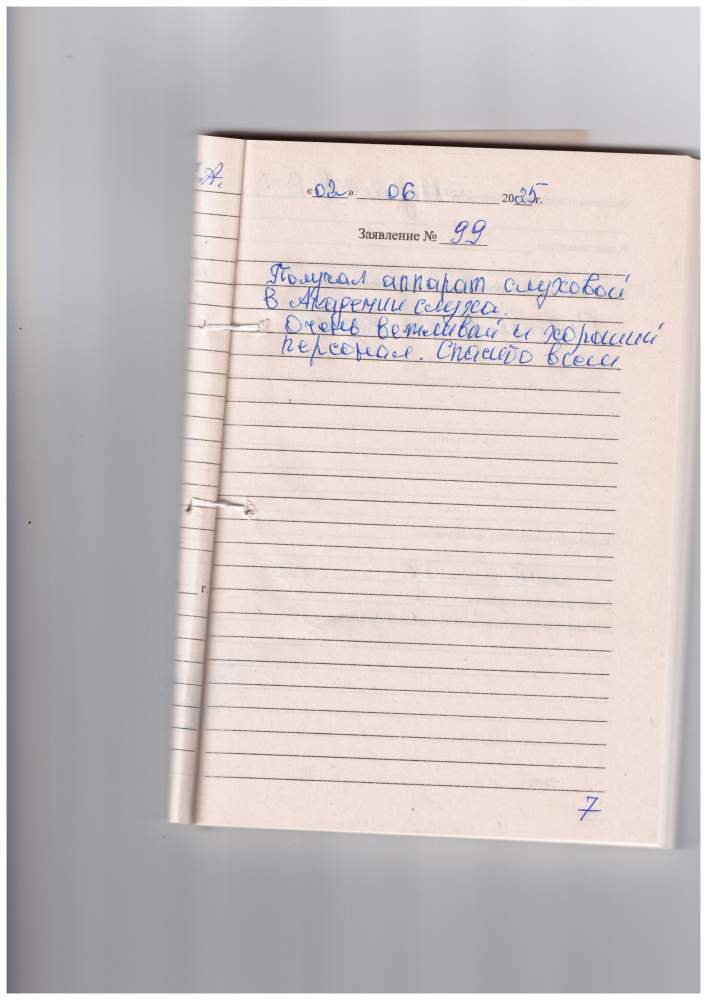 А.
«02» 06 2025г.
Заявление № 99
Получал аппарат слуховой
в Академии слуха.
Очень вежливай и хороший
персонал. Спасибо всем
г.
7